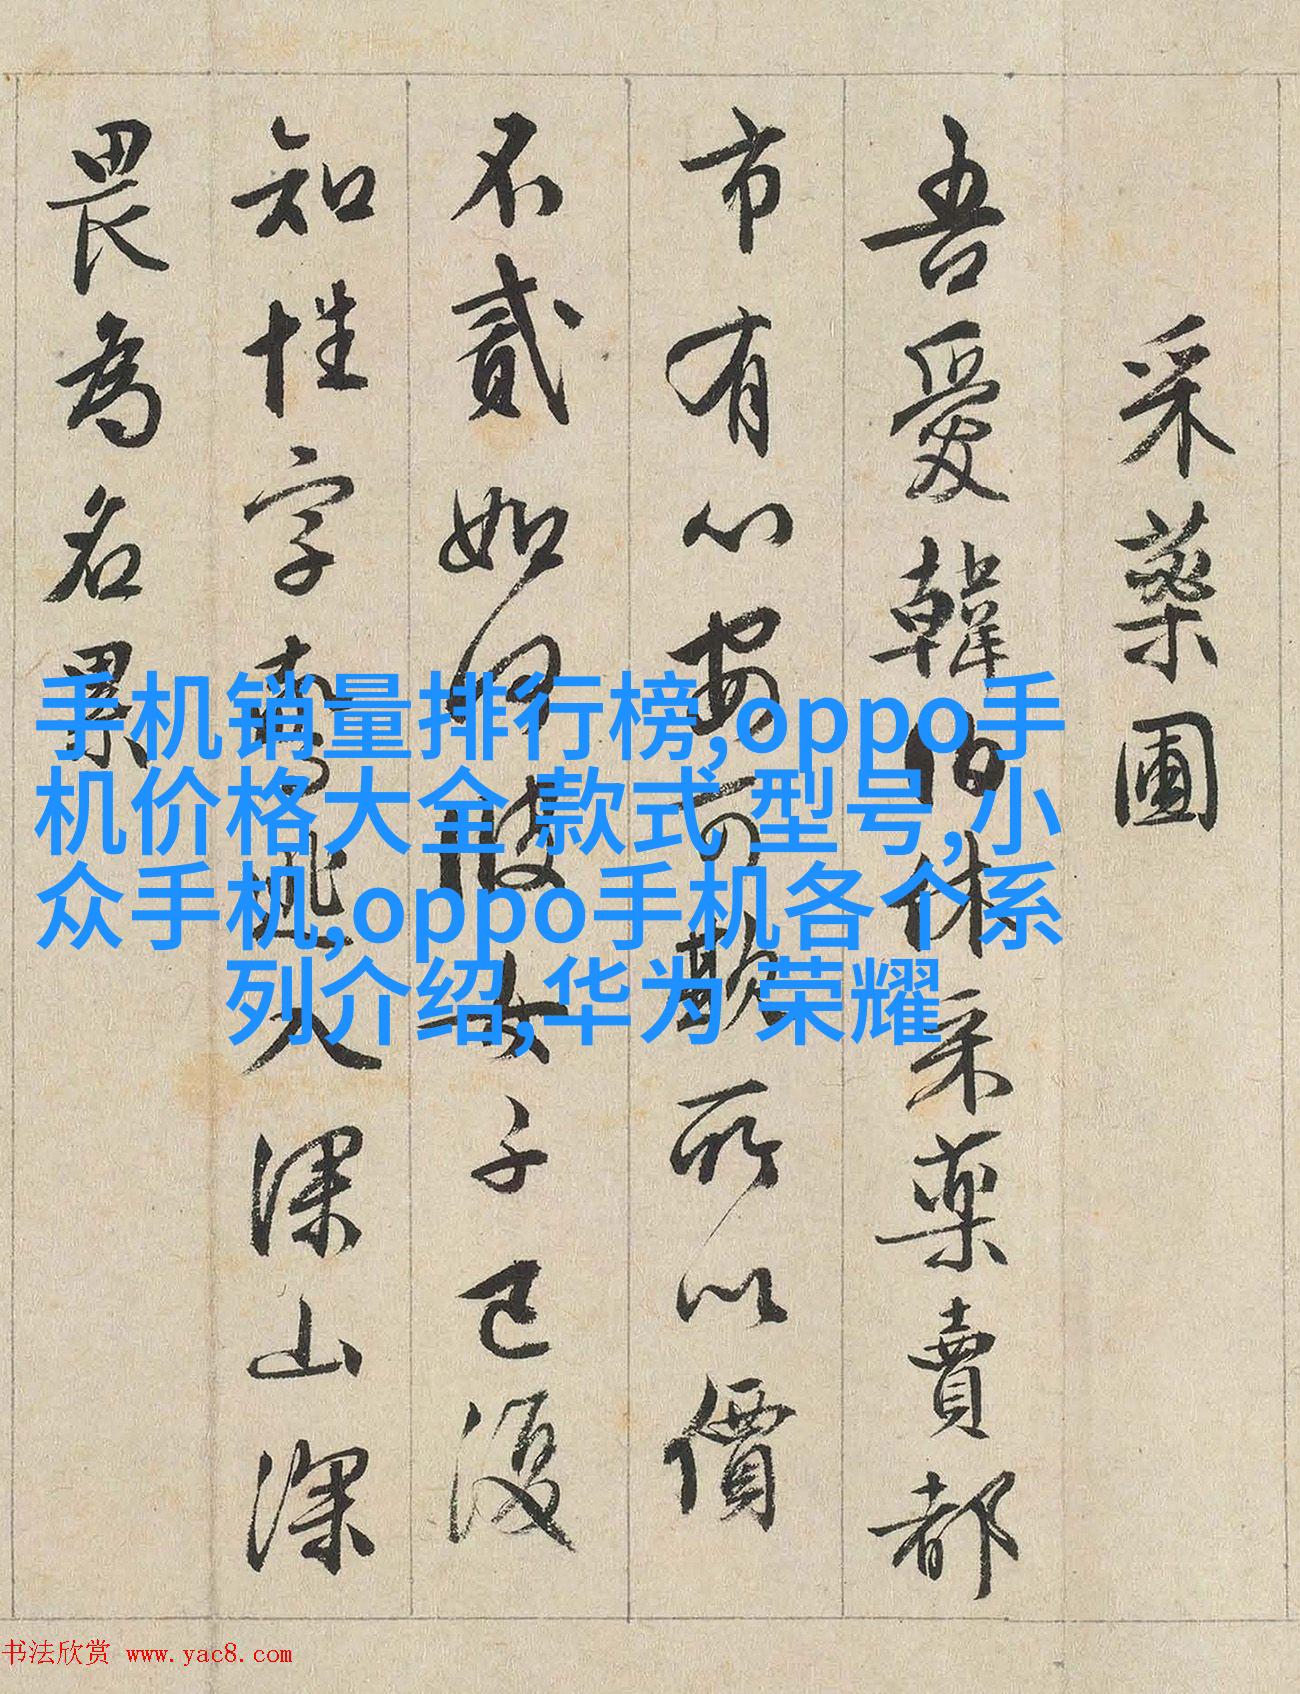 采藥圃
吾愛韓伯休采藥賣都
市有心安可欺所以價
不貳如何彼女子已復
知性字驚逃入深山深
畏為名累
手机销量排行榜,oppo手
机价格大全 款式 型号,小
众手机,oppo手机各个系
列介绍,华为 荣耀
书法欣赏 www.yac8.com